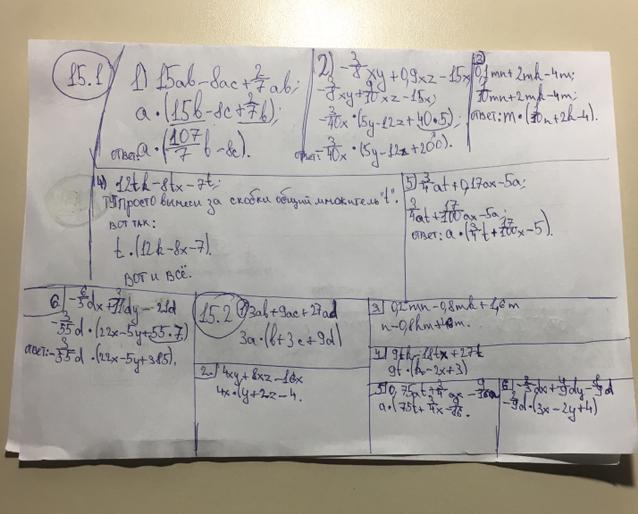 15.1
1) 15ab-8ac+2/7ab;
a·(15b-8c+2/7b);
ответ: a·(107/7b-8c).
2) -3/8xy+0,9xz-15x
-3/8xy+9/10xz-15x;
-3/40x·(5y-12z+40·5);
ответ: -3/40x·(5y-12z+200).
3) 0,1mn+2mk-4m;
1/10mn+2mk-4m;
ответ: m·(1/10n+2k-4).
4) 12tk-8tx-7t;
Просто вынеси за скобки общий множитель "t".
вот так:
t·(12k-8x-7).
вот и всё.
5) 3/4at+0,17ax-5a;
3/4at+17/100ax-5a;
ответ: a·(3/4t+17/100x-5).
6)
-3/55d·(22x-5y+55·7)
ответ: -3/55d·(22x-5y+385).
15.2
1) 3ab+9ac+27ad
3a·(b+3c+9d)
2. 4xy+8xz-16x
4x·(y+2z-4.
3) 0,2mn-0,8mk+1,6m
4) 9tk-18tx+27t
9t·(k-2x+3)
5)
6)
·(3x-2y+4)